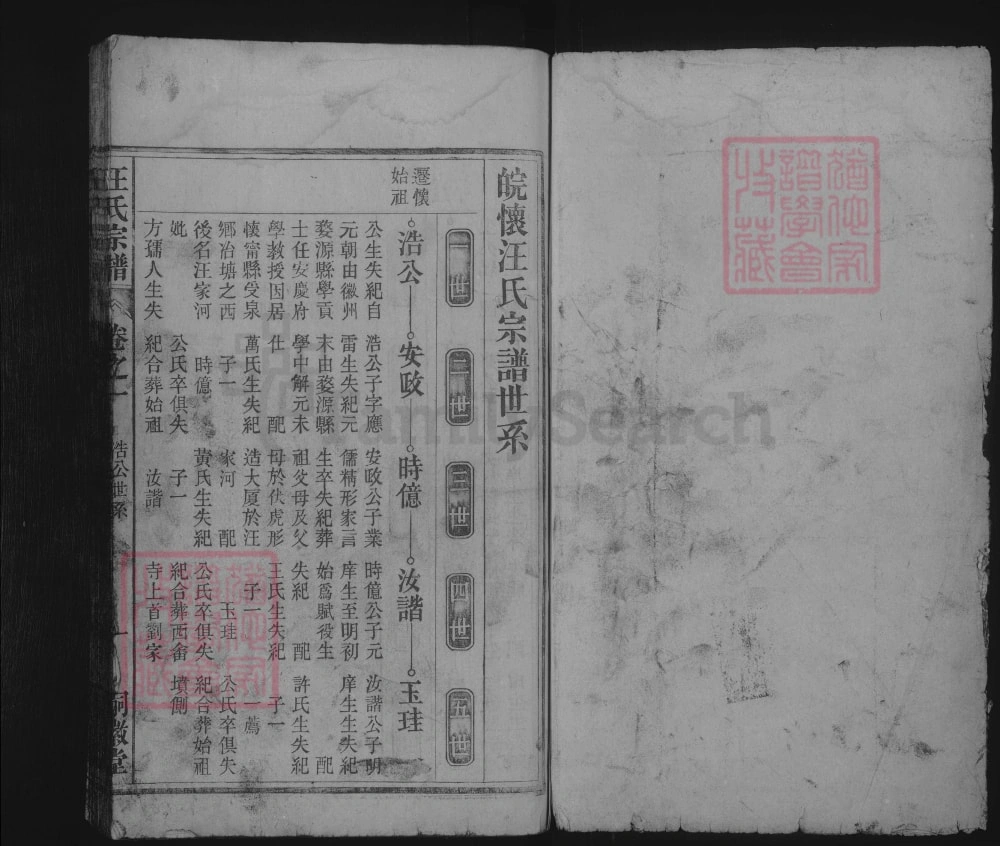 猶他家譜學會特藏
皖懷汪氏宗譜世系
一世
二世
三世
四世
五世
遷懷始祖
浩公
安政
時億
汝諧
玉珪
公生失紀自
元朝由徽州
婺源縣學貢
士任安慶府
學教授因居
懷甯縣受泉
鄉冶塘之西
後名汪家河
妣
方孺人生失
浩公子字應
雷生失紀元
末由婺源縣
學中解元未
仕 配
萬氏生失紀
子一
時億
公氏卒俱失
紀合葬始祖
安政公子業
儒精形家言
生卒失紀葬
祖父母及父
母於伏虎形
造大厦於汪
家河 配
黃氏生失紀
子一
汝諧
時億公子元
庠生至明初
始爲賦役生
失紀 配
王氏生失紀
子一
玉珪
公氏卒俱失
紀合葬西畬
寺上首劉家
汝諧公子明
庠生生失紀
配
許氏生失紀
子一
一薦
公氏卒俱失
紀合葬始祖
墳側
汪氏宗譜
卷之一
浩公世系
一
嗣徽堂
猶他家譜學會特藏
FamilySearch